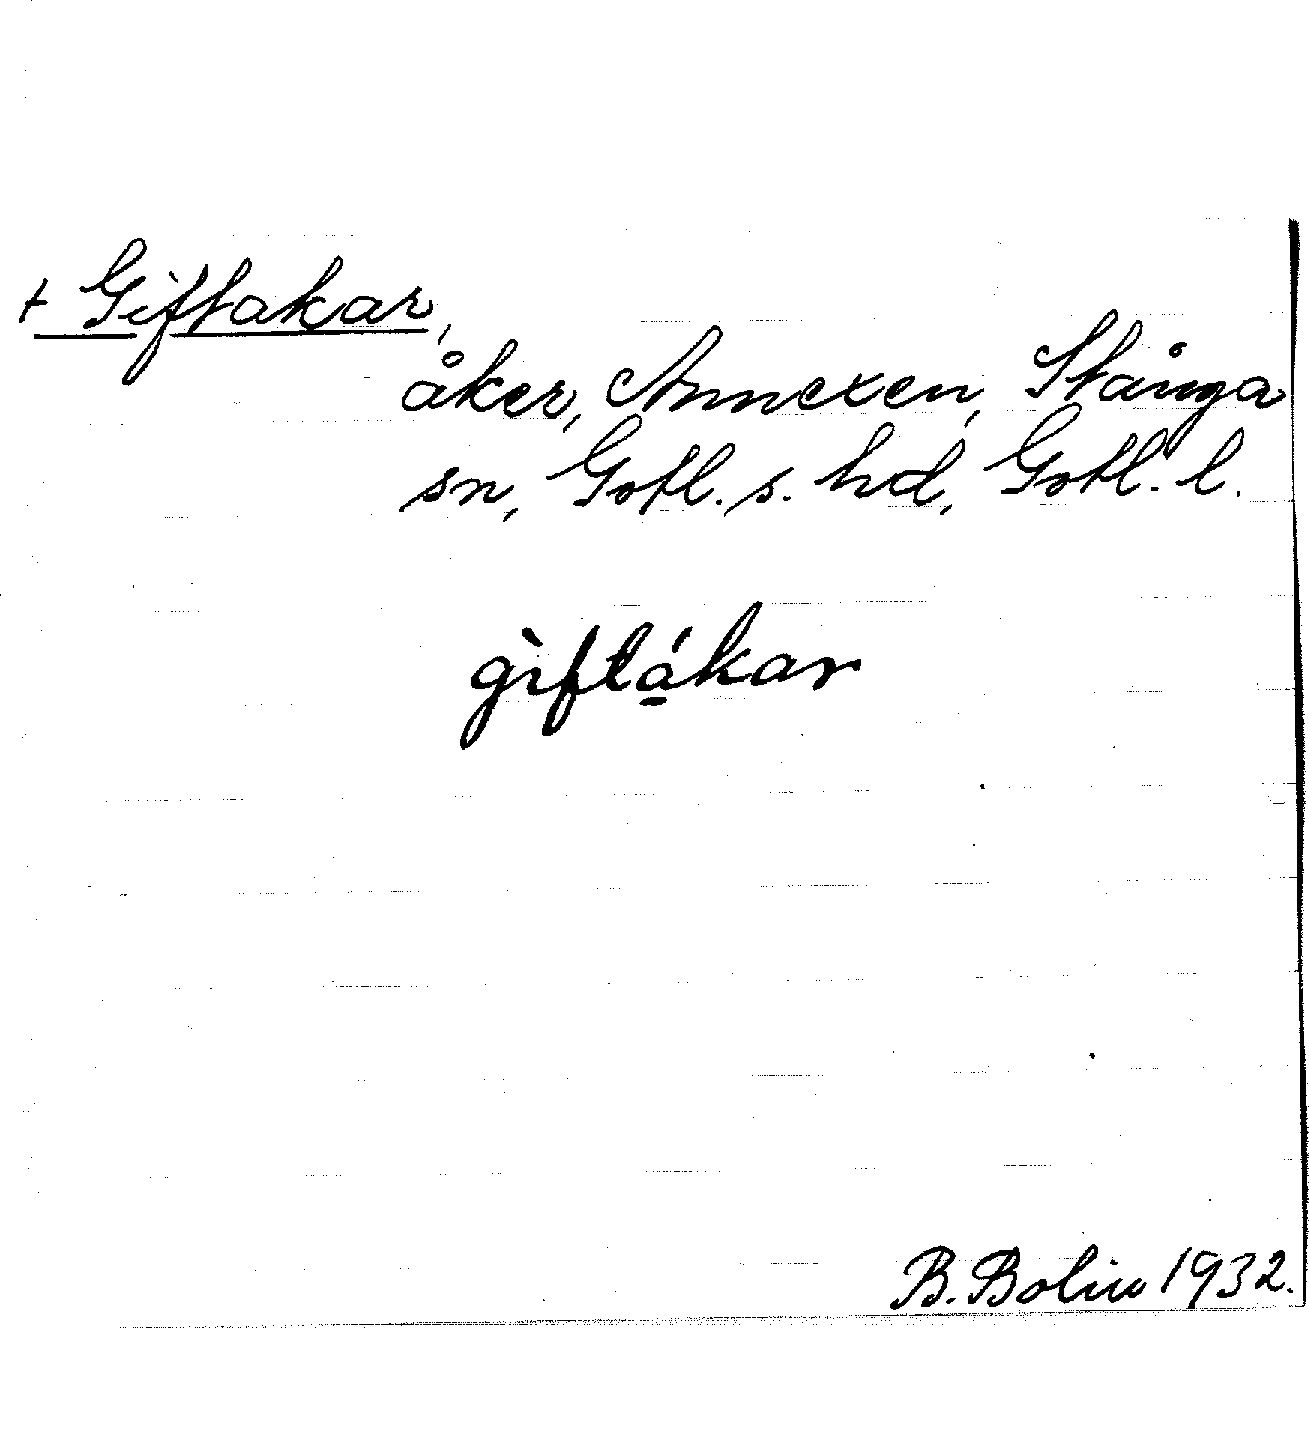 + Giftakar,
åker, Annexen, Stånga
sn, Gotl. s. hd, Gotl. l.
gìftá̱kar
B. Bolin 1932.